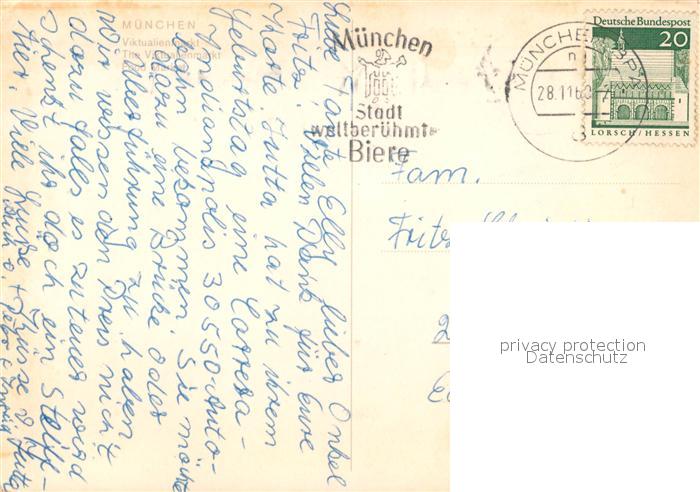 MÜNCHEN
Viktualienmarkt
The Viktualienmarkt
Liebe Tante Elly lieber Onkel
Fritz! Vielen Dank für Eure
Karte. Jutta hat zu ihrem
Geburtstag eine Carrera-
Indianapolis 30550-Auto-
bahn bekommen. Sie möchte
dazu eine Brücke oder
Überführung zu haben
Wir wissen den Preis nicht
dazu falls es zu teuer wird
schenkt ihr doch ein Stoff-
tier. Viele Grüße + Küsse v. Jutta
Ruth u. Peter + Ingrid
München
Stadt
weltberühmter
Biere
MÜNCHEN
28.11.68
8
Deutsche Bundespost
20
LORSCH/HESSEN
Fam.
Fritz
privacy protection
Datenschutz